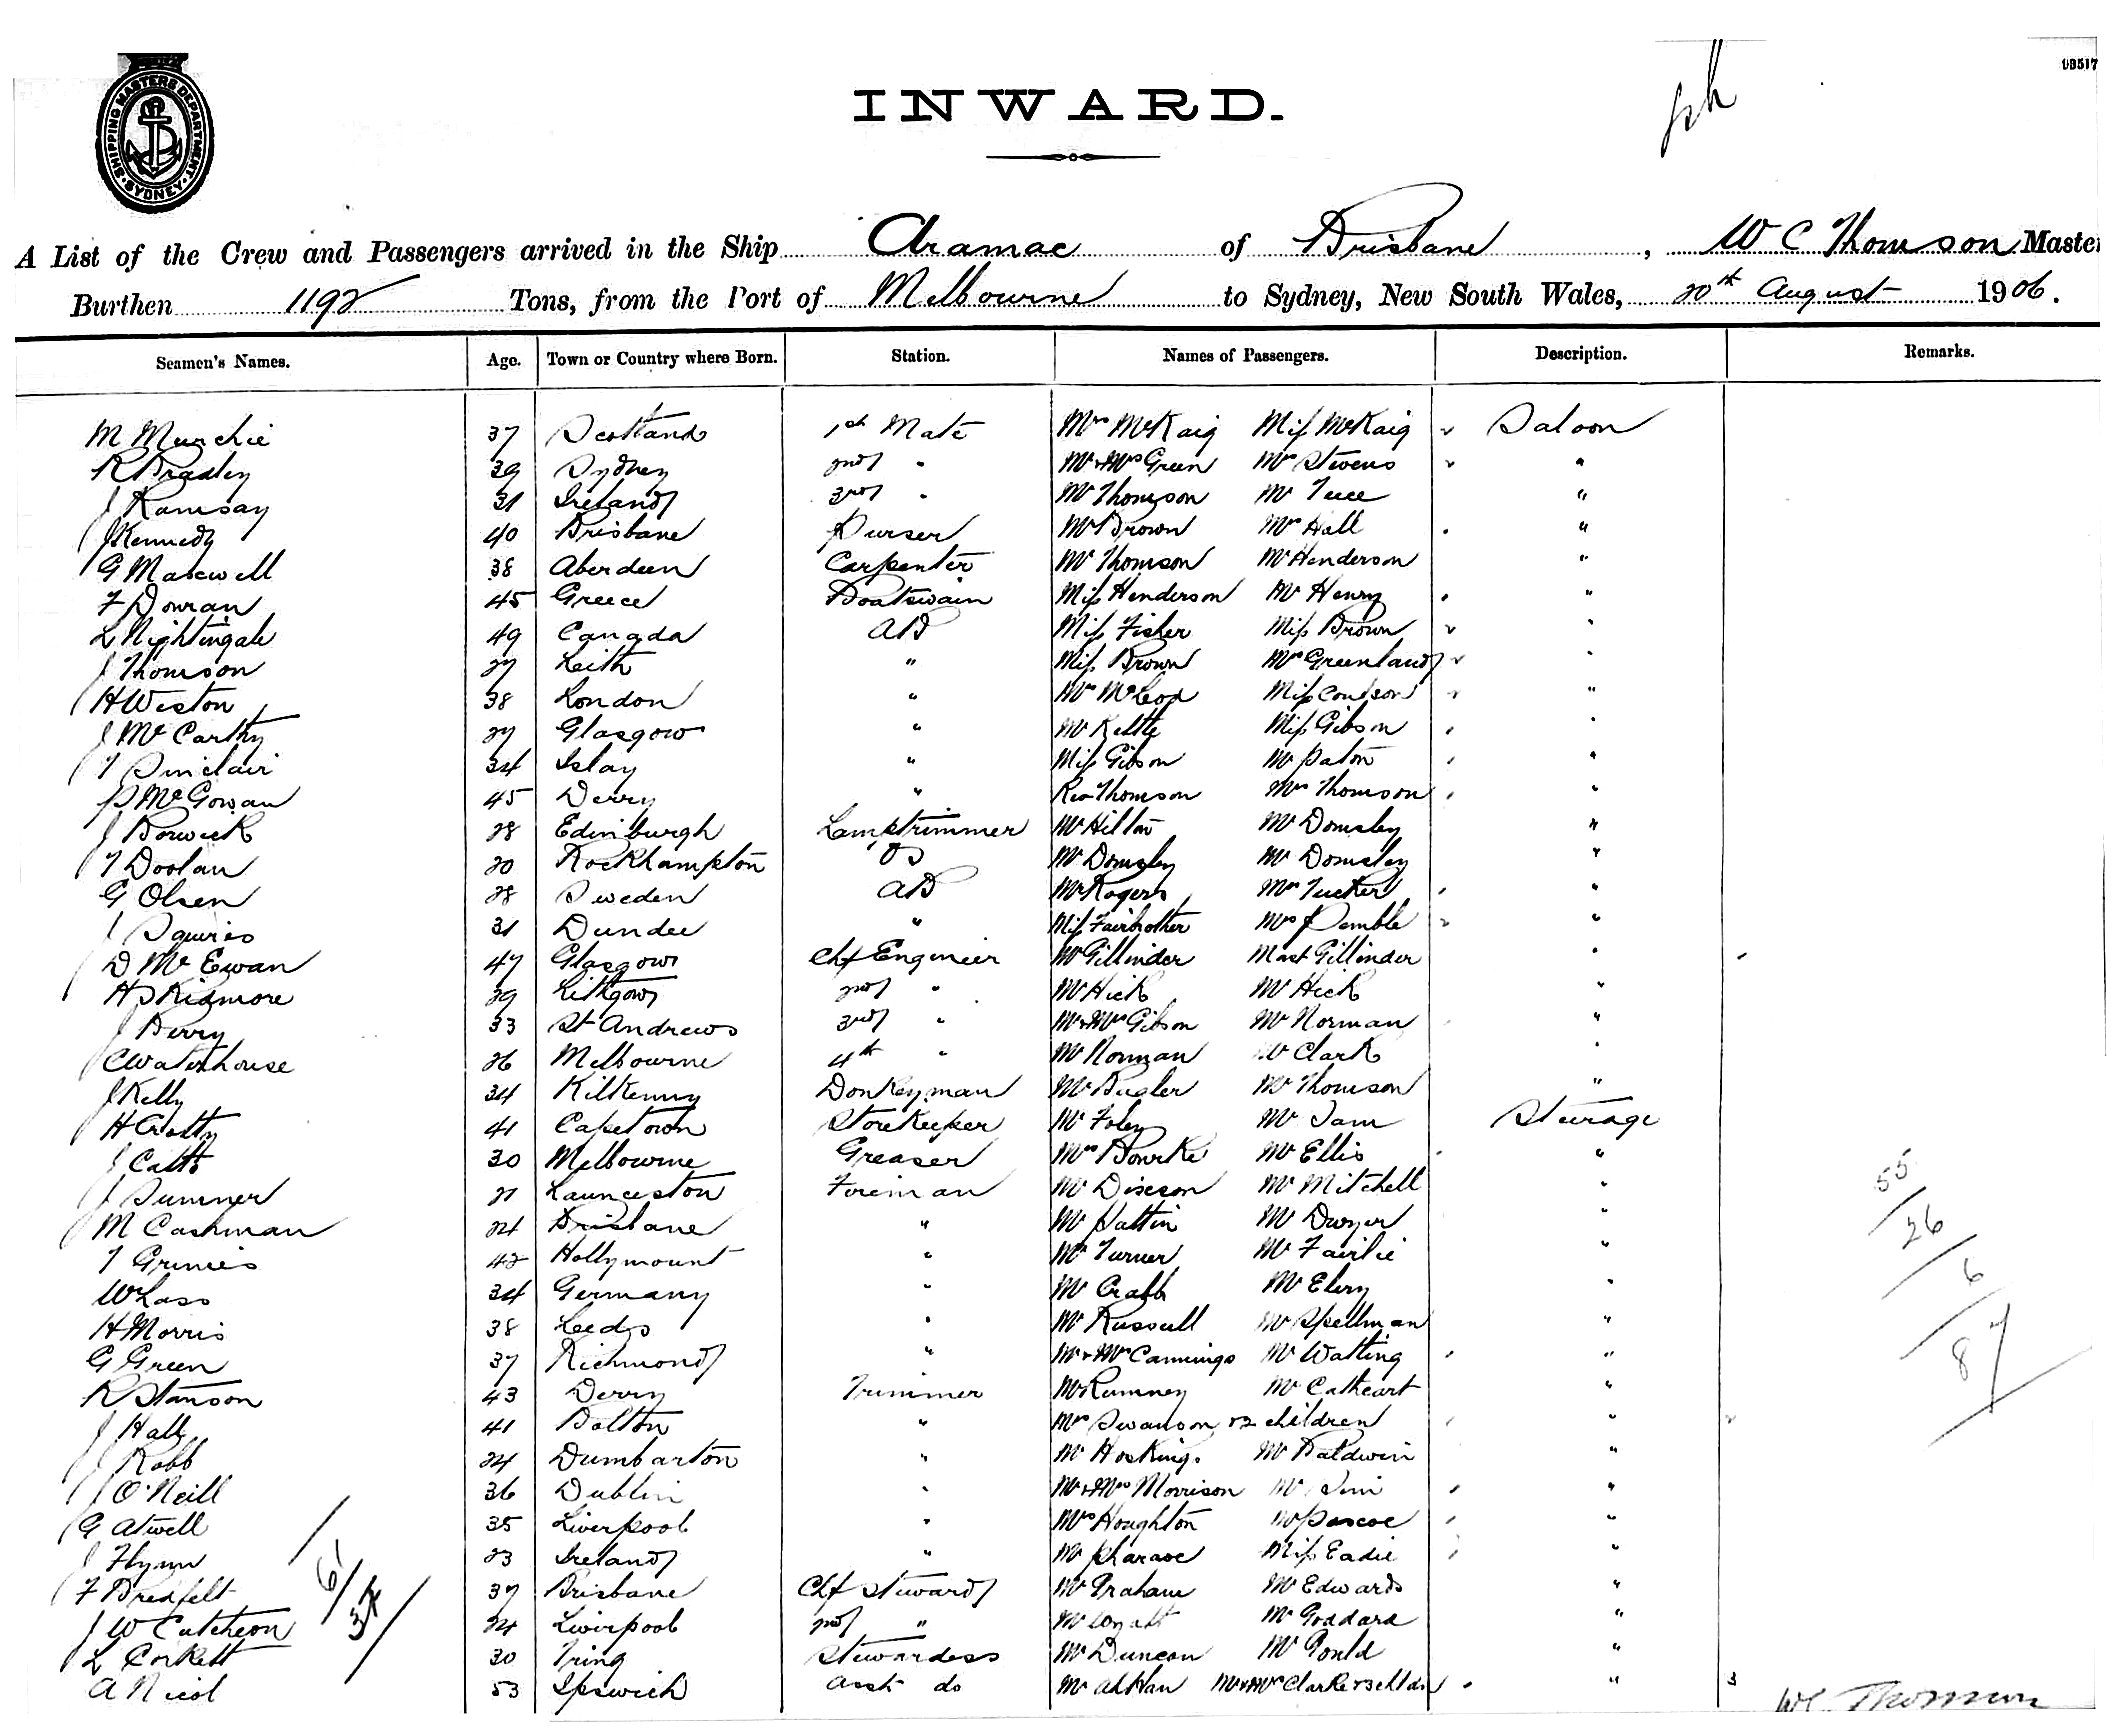 SHIPPING MASTERS DEPARTMENT
SYDNEY
INWARD.
A List of the Crew and Passengers arrived in the Ship Aramac of Brisbane, W C Thomson Maste
Burthen 1192 Tons, from the Port of Melbourne to Sydney, New South Wales, 20th August 1906.
Seamen's Names. Age. Town or Country where Born. Station. Names of Passengers. Description. Remarks.
M Murchie 37 Scotland 1st Mate Mrs McKaig Miss McKaig Saloon
R Bradley 39 Sydney 2nd " Mr & Mrs Green Mrs Stevens "
J Ramsay 31 Ireland 3rd " Mr Thomson Mr Tuce "
J Kennedy 40 Brisbane Purser Mr Brown Mrs Hall "
G Maxwell 38 Aberdeen Carpenter Mr Thomson Mr Henderson "
F Dowran 45 Greece Boatswain Miss Henderson Mr Henry "
L Nightingale 49 Canada AB Miss Fisher Miss Brown "
J Thomson 27 Leith " Miss Brown Mrs Greenland "
H Weston 38 London " Mrs McLeod Miss Coulson "
J McCarthy 27 Glasgow " Mr Kettle Miss Gibson "
T Sinclair 34 Islay " Miss Gibson Mr Paton "
P McGowan 45 Derry " Rev Thomson Mrs Thomson "
J Borwick 28 Edinburgh Lamptrimmer Mr Hilton Mr Domsley "
T Doolan 20 Rockhampton OS Mr Domsley Mr Domsley "
G Olsen 28 Sweden AB Mr Rogers Mrs Tucker "
J Squires 31 Dundee " Miss Fairbrother Mrs Pemble "
D McEwan 47 Glasgow Chf Engineer Mr Gillinder Mast Gillinder "
H Skidmore 39 Lithgow 2nd " Mr Hick Mr Hick "
J Berry 33 St Andrews 3rd " Mr & Mrs Gibson Mr Norman "
C Waterhouse 26 Melbourne 4th " Mr Norman Mr Clark "
J Kelly 34 Kilkenny Donkeyman Mr Bugler Mr Thomson "
H Crotty 41 Capetown Storekeeper Mr Foley Mr Sam Steerage
J Catts 30 Melbourne Greaser Mrs Bourke Mr Ellis "
J Sumner 21 Launceston Fireman Mr Dixson Mr Mitchell "
M Cashman 24 Brisbane " Mr Hattin Mr Dwyer "
T Grimes 42 Hollymount " Mr Turner Mr Fairlie "
W Lass 34 Germany " Mr Crabb Mr Elery "
H Morris 38 Leeds " Mr Russell Mr Spellman "
G Green 37 Richmond " Mr & Mrs Cannings Mr Watting "
R Stanson 43 Derry Trimmer Mr Rumney Mr Cathcart "
J Hall 41 Bolton " Mrs Swanson & 2 children "
J Robb 24 Dumbarton " Mr Hosking. Mr Baldwin "
J O'Neill 36 Dublin " Mr & Mrs Morrison Mr Sim "
G Atwell 35 Liverpool " Mrs Houghton Mr Pascoe "
J Flynn 23 Ireland " Mr Pharaoe Miss Eadie "
F Bredfelt 37 Brisbane Chf Steward Mr Graham Mr Edwards "
J W Cutcheon 24 Liverpool 2nd " Mr Wyatt Mr Goddard "
L Corkett 30 Tring Stewardess Mr Duncan Mr Gould "
A Nicol 53 Ipswich Asst do Mr Ah Han Mr & Mrs Clarke & 3 chldn " 3
55
26
6
87
WC Thomson